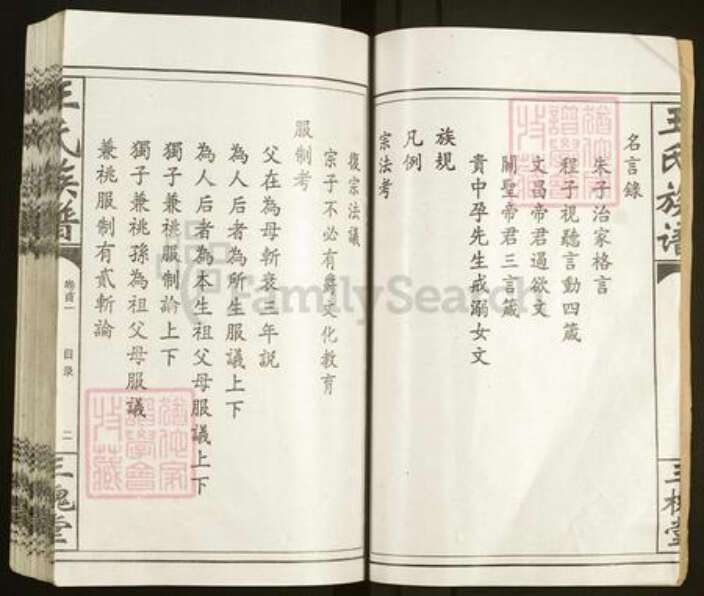 王氏族譜
三槐堂
名言錄
朱子治家格言
程子視聽言動四箴
文昌帝君遏欲文
關聖帝君三言箴
貴中孕先生戒溺女文
族規
凡例
宗法考
復宗法議
宗子不必有爵文化教育
服制考
父在為母斬衰三年説
為人后者為所生服議上下
為人后者為本生祖父母服議上下
獨子兼祧服制論上下
獨子兼祧孫為祖父母服議
兼祧服制有貳斬論
王氏族譜
卷首一
目录
二
三槐堂
FamilySearch